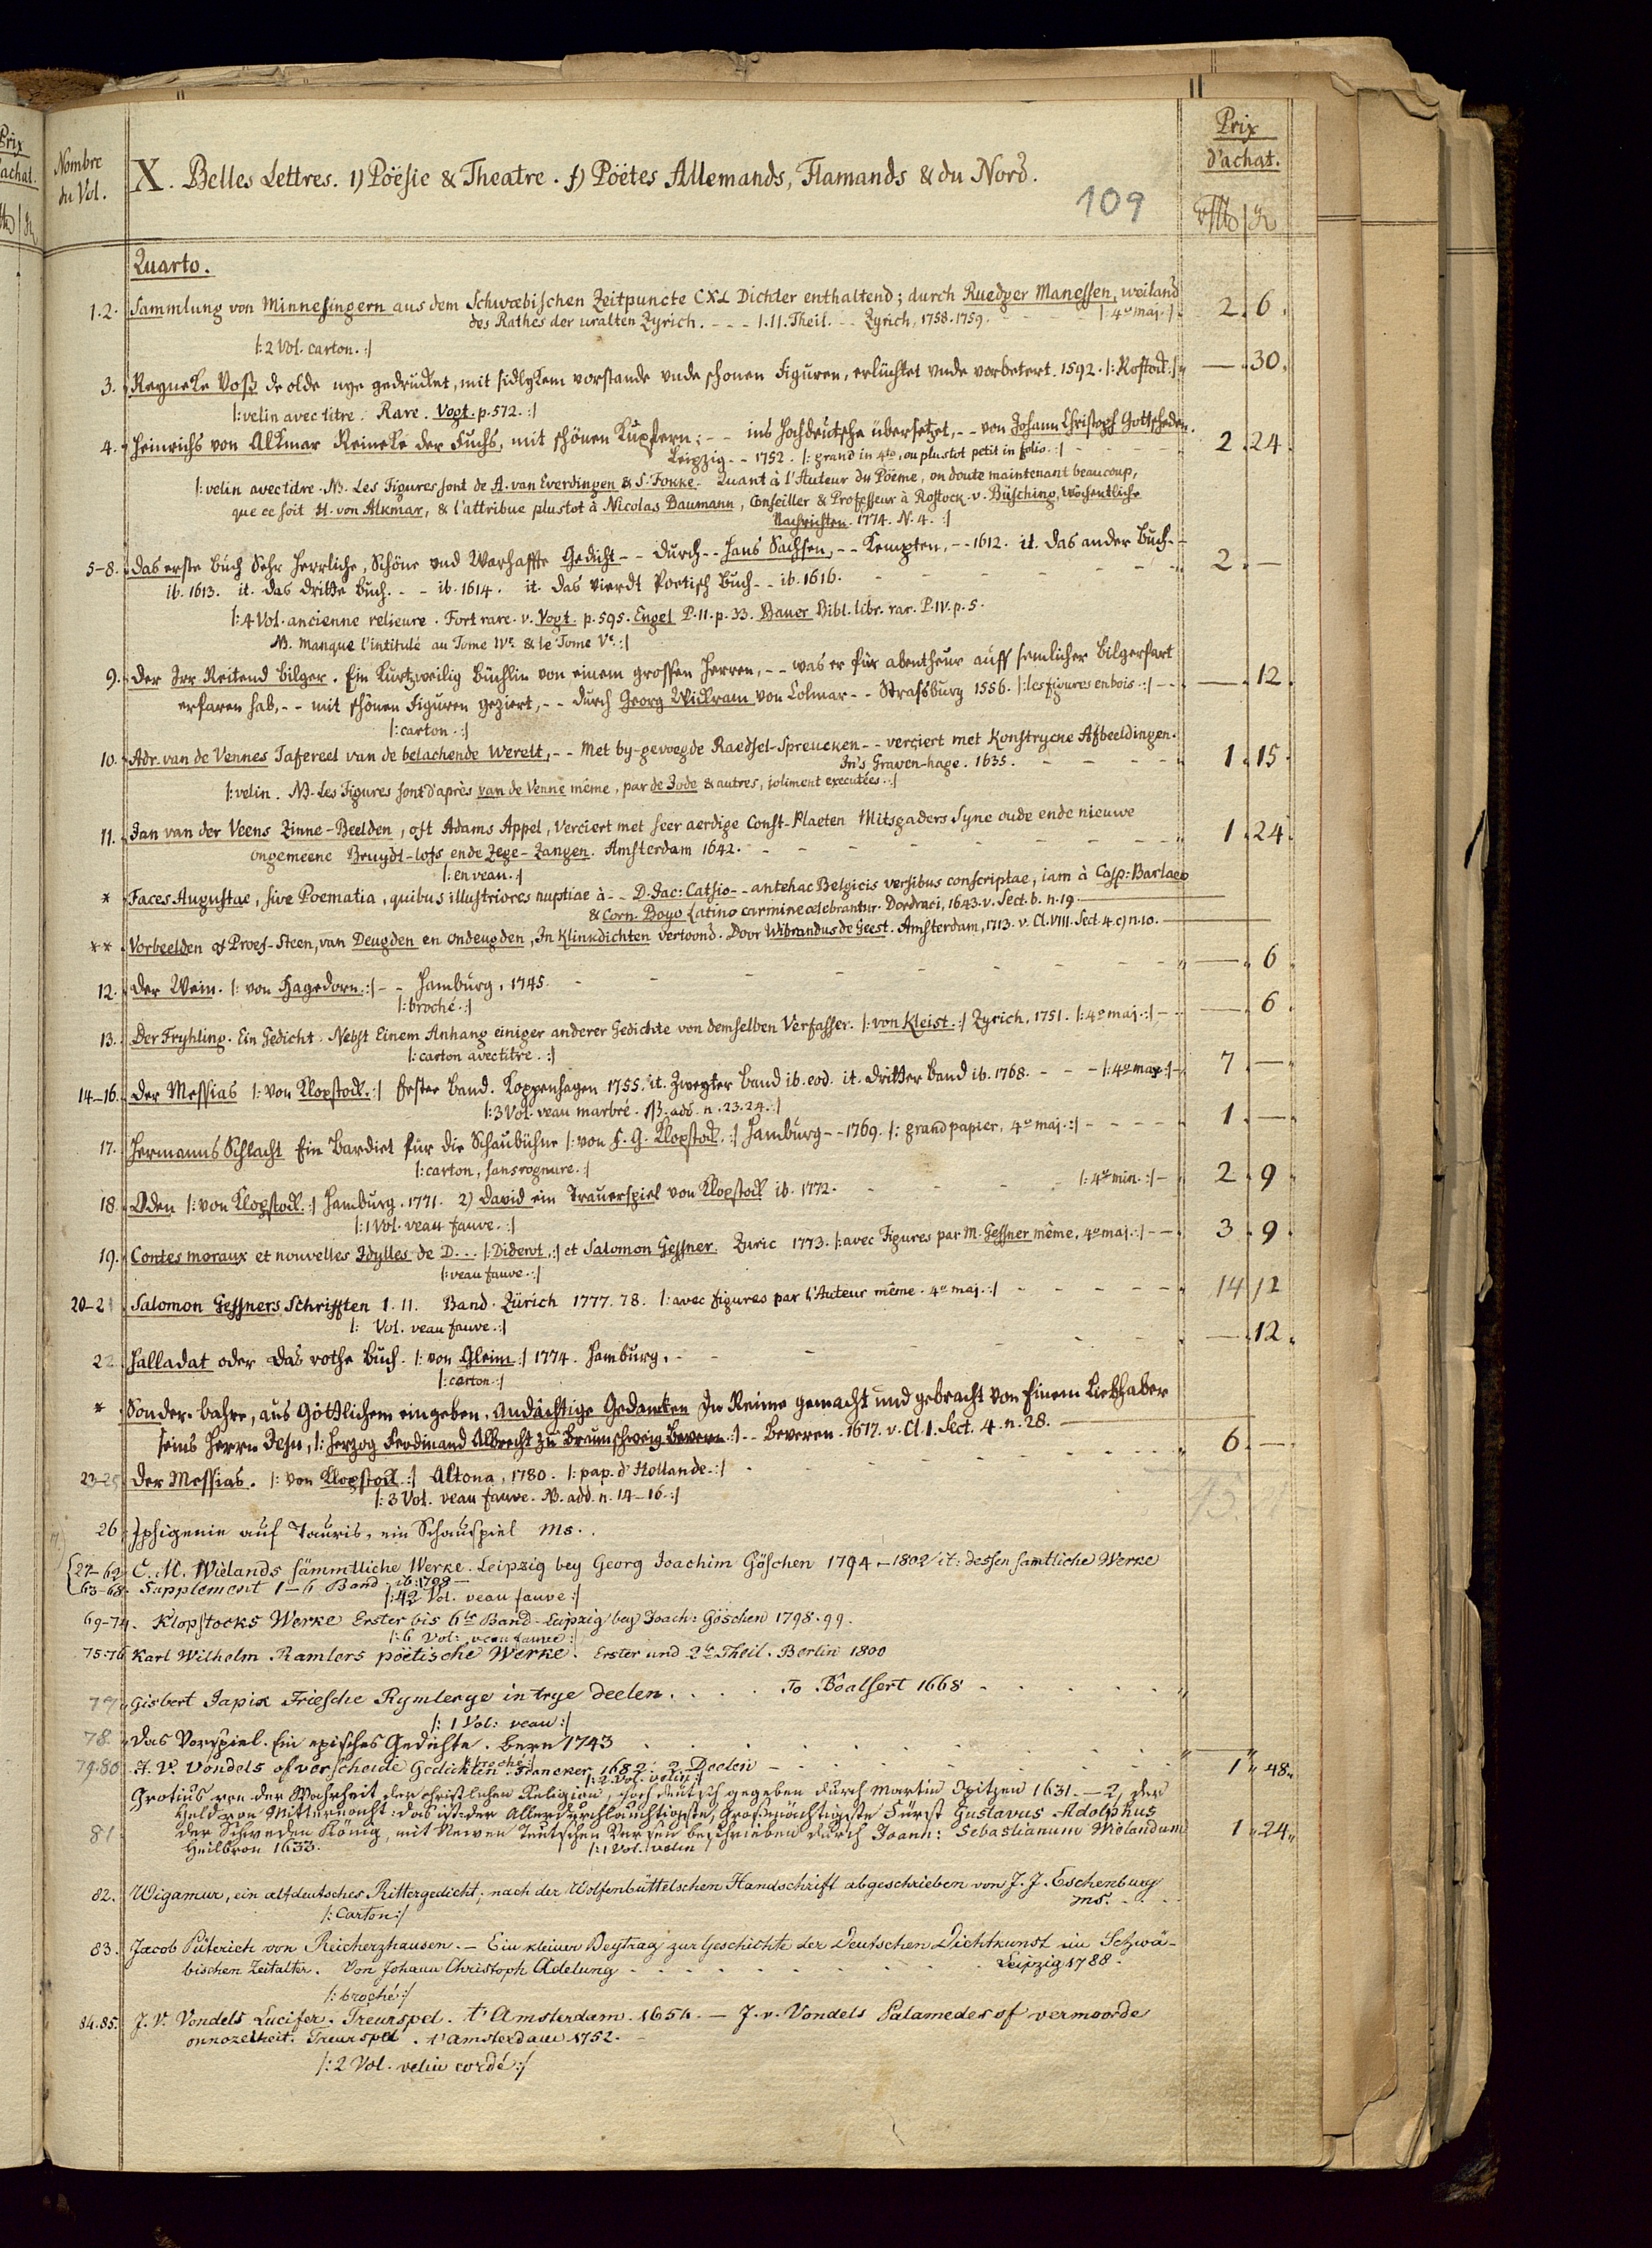 Prix
d'achat.
Nombre
du Vol.
X. Belles Lettres. 1) Poësie & Theatre. f) Poëtes Allemands, Flamands & du Nord.
109
Prix
d'achat.
Quarto.
1.2. Sammlung von Minnesingern aus dem Schwæbischen Zeitpuncte CXL Dichter enthaltend; durch Ruedger Manessen, weiland
des Rathes der uralten Zyrich. - - - I. II. Theil. - - Zyrich, 1758. 1759. |: 4° maj. :| 2. 6.
|: 2 Vol. carton. :|
3. Reyneke Voß de olde nye gedrucket, mit sidlykem vorstande unde schonen Figuren, erlüchtet unde vorbetert. 1592. |: Rostock :| — 30.
|: velin avec titre. Rare. Vogt. p. 572. :|
4. Heinrichs von Alkmar Reineke der Fuchs, mit schönen Kupfern; - - ins Hochdeutsche übersetzet, - - von Johann Christoph Gottscheden.
Leipzig - - 1752. |: grand in 4to, ou plustot petit in folio. :| 2. 24.
|: velin avec titre. NB. Les Figures sont de A. van Everdingen & S. Fokke. Quant à l'Auteur du Poëme, on doute maintenant beaucoup,
que ce soit H. von Alkmar, & l'attribue plustot à Nicolas Baumann, Conseiller & Professeur à Rostock. v. Büsching, Wöchentliche
Nachrichten. 1774. N. 4. :|
5-8. Das erste Buch Sehr Herrliche, Schöne und Warhaffte Gedicht - - durch - - Hans Sachsen, - - Kempten, - - 1612. it. Das ander Buch - -
ib. 1613. it. das dritte Buch. - - ib. 1614. it. das vierdt Poetisch Buch - - ib. 1616. 2. —
|: 4 Vol. ancienne relieure. Fort rare. v. Vogt. p. 595. Engel P. II. p. 33. Bauer Bibl. libr. rar. P. IV. p. 5.
NB. manque l'intitulé au Tome IVe. & le Tome Ve. :|
9. Der Irr Reitend Bilger. Ein Kurtzweilig Büchlin von einem grossen Herren, - - was er für abentheur auff semlicher Bilgerfart
erfaren hab, - - mit schönen Figuren geziert, - - durch Georg Wickram von Colmar - - Strassburg 1556. |: les figures en bois. :| — 12.
|: carton. :|
10. Adr. van de Vennes Tafereel van de belachende Werelt, - - Met by-gevoegde Raedsel-Spreucken - - verciert met Konstrycke Afbeeldingen.
In's Graven-hage. 1635. 1. 15.
|: velin. NB. Les Figures sont d'après van de Venne même, par de Jode & autres, joliment executées. :|
11. Jan van der Veens Zinne-Beelden, oft Adams Appel, Verciert met seer aerdige Const-Plaeten Mitsgaders Syne oude ende nieuwe
ongemeene Bruydt-lofs ende Zege-Zangen. Amsterdam 1642. 1. 24.
|: en veau. :|
* Faces Augustae, sive Poematia, quibus illustriores nuptiae à - - D. Jac: Catsio - - antehac Belgicis versibus conscriptae, iam à Casp: Barlaeo
& Corn. Boyo Latino carmine celebrantur. Dordraci, 1643. v. Sect. b. n. 19.
** Vorbeelden of Proef-Steen, van Deugden en ondeugden, In Klinkdichten vertoond. Door Wibrandus de Geest. Amsterdam, 1713. v. Cl. VIII. Sect. 4. c) n. 10.
12. Der Wein. |: von Hagedorn. :| - - Hamburg, 1745. — 6
|: broché. :|
13. Der Fryhling. Ein Gedicht. Nebst Einem Anhang einiger anderer Gedichte von demselben Verfasser. |: von Kleist. :| Zyrich, 1751. |: 4° maj. :| — 6.
|: carton avec titre. :|
14-16. Der Messias |: von Klopstock. :| Erster Band. Koppenhagen 1755. it. Zweyter Band ib. eod. it. dritter Band ib. 1768. - - - |: 4° maj. :| 7 —
|: 3 Vol. veau marbré. NB. add. n. 23.24. :|
17. Hermanns Schlacht Ein Bardiet für die Schaubühne |: von F. G. Klopstock. :| Hamburg - - 1769. |: grand papier, 4° maj. :| 1. —
|: carton, sans rognure. :|
18. Oden |: von Klopstock. :| Hamburg. 1771. 2) David ein Trauerspiel von Klopstock ib. 1772. |: 4° min. :| 2. 9
|: 1 Vol. veau fauve. :|
19. Contes moraux et nouvelles Idylles de D... |: Diderot. :| et Salomon Gessner. Zuric 1773. |: avec Figures par M. Gessner même, 4° maj. :| 3. 9
|: veau fauve. :|
20-21 Salomon Gessners Schrifften I. II. Band. Zürich 1777. 78. |: avec figures par l'Auteur même. 4° maj. :| 14 12
|: Vol. veau fauve. :|
22. Halladat oder das rothe Buch. |: von Gleim :| 1774. Hamburg. — 12.
|: carton. :|
* Sonder-bahre, aus Göttlichem eingeben, Andächtige Gedancken In Reime gemacht und gebracht von Einem Liebhaber
seins Herrn Jesu, |: Herzog Ferdinand Albrecht zu Braunschweig Bevern. :| - - Beveren. 1677. v. Cl. I. Sect. 4. n. 28.
23-25 Der Messias. |: von Klopstock. :| Altona, 1780. |: pap. d'Hollande. :| 6. —
|: 3 Vol. veau fauve. NB. add. n. 14-16. :|
26. Iphigenie auf Tauris, ein Schauspiel Ms.
27-62. C. M. Wielands sämmtliche Werke. Leipzig bey Georg Joachim Göschen 1794-1802 it: dessen samtliche Werke
63-68. Supplement 1-6 Band. ib: 1798 —
|: 42 Vol. veau fauve :|
69-74. Klopstocks Werke Erster bis 6te Band. Leipzig bey Joach: Göschen 1798. 99.
|: 6 Vol: veau fauve :|
75-76 Karl Wilhelm Ramlers poëtische Werke. Erster und 2te Theil. Berlin 1800
77. Gisbert Japix Friesche Rymlerye in trye deelen. To Boalsert 1668
|: 1 Vol: veau :|
78. Das Vorspiel. Ein episches Gedichte. Bern 1743
|: broché :|
79.80. J. V. Vondels of verscheide Gedichten. Franeker 1682. 2 Deelen 1 " 48 "
|: 2 Vol. velin :|
Grotius von der Wahrheit der christlichen Religion, hochdeutsch gegeben durch Martin Opitzen 1631. — 2, der
Held von Mitternacht: das ist: der Allerdurchläuchtigste, Grosmächtigste Fürst Gustavus Adolphus
81 der Schweden König, mit Newen Teutschen Versen beschrieben durch Joann: Sebastianum Wielandum 1 " 24 "
Heilbron 1633. |: 1 Vol. velin
82. Wigamur, ein altdeutsches Rittergedicht, nach der Wolfenbüttelschen Handschrift abgeschrieben von J. J. Eschenburg
ms.
|: Carton :|
83. Jacob Püterich von Reicherzhausen. — Ein kleiner Beytrag zur Geschichte der Deutschen Dichtkunst im Schwä-
bischen Zeitalter. Von Johann Christoph Adelung Leipzig 1788.
|: broché :|
84.85. J. V. Vondels Lucifer. Treurspel. t'Amsterdam. 1654. — J. v. Vondels Palamedes of vermoorde
onnozelheit. Treurspel. t'Amsterdam 1752.
|: 2 Vol. velin cordé :|